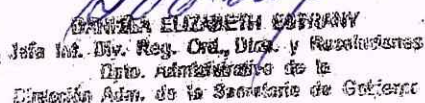 ELIZABETH
Jefa Int. Div. Reg. Ord., Dtos. y Resoluciones
Dpto. Administrativo de la
Dirección Adm. de la Secretaría de Gobierno